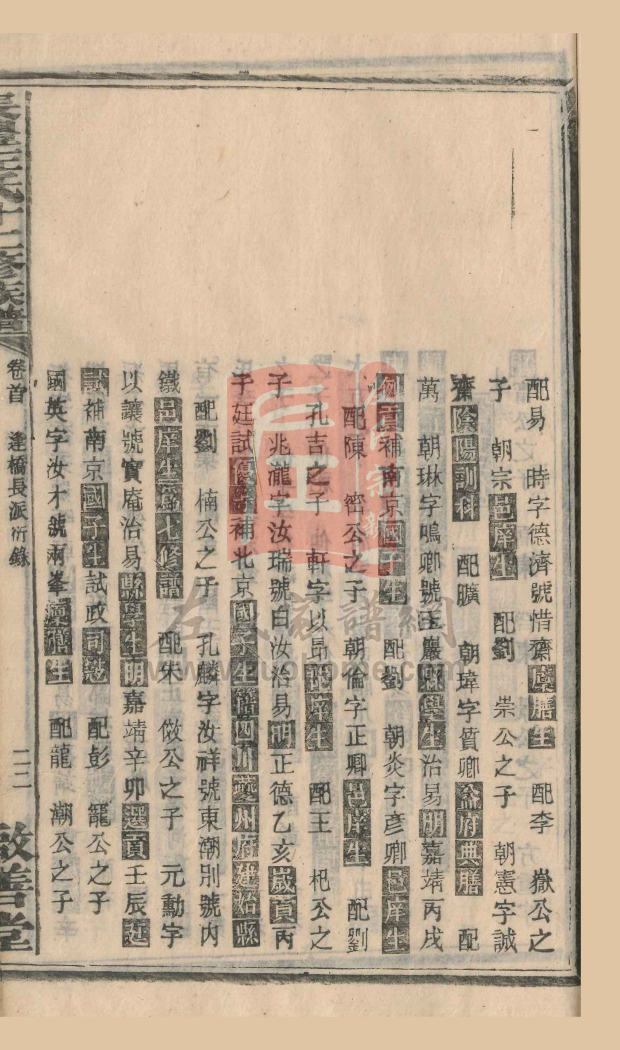 配易　時字德濟號惜齋廩膳生　配李　嶽公之
子　朝宗邑庠生　配劉　崇公之子　朝憲字誠
齋陰陽訓科　配曠　朝瑋字質卿　府典膳　配
萬　朝琳字鳴卿號玉巖縣學生治易明嘉靖丙戌
貢補南京國子生　配劉　朝炎字彥卿邑庠生
配陳　公之子　朝倫字正卿邑庠生　配劉
孔吉之子　軒字以昂邑庠生　配王　杞公之
子　兆瀧字汝瑞號白汝治易明正德乙亥歲貢丙
子廷試優等補北京國子生　四川夔州府建始縣
配劉　楠公之子　孔麟字汝祥號東潮別號內
鐵邑庠生　七修譜　配朱　倣公之子　元勳字
以讓號寶庵治易縣學生明嘉靖辛卯選貢壬辰廷
試補南京國子生試政司　配彭　寵公之子
國英字汝才號兩峯廩膳生　配龍　潮公之子
王氏十二修族譜
卷首　逢橋長派衍錄
二二
敦善堂
左氏家譜網
www.zuohome.com